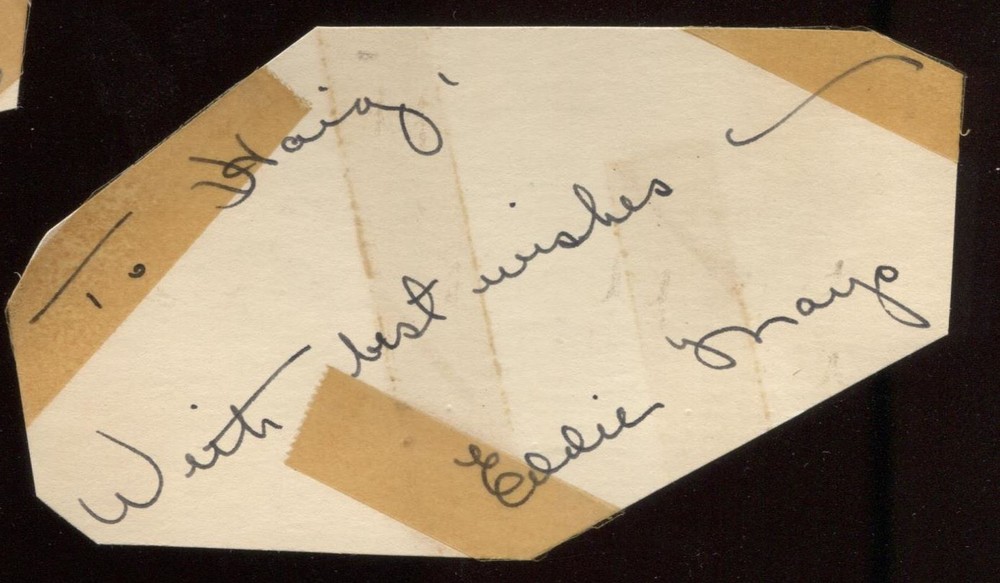 To Haig,
With best wishes –
Eddie Mayo